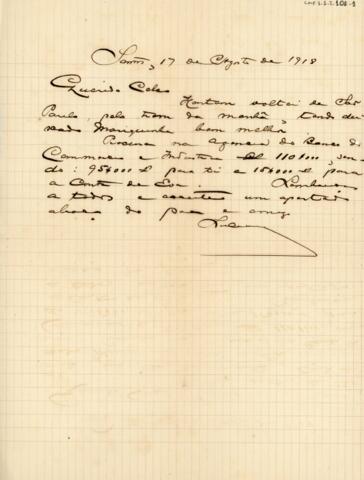 Santos, 17 de Agosto de 1918
Querido
Hontem voltei de São
Paulo, pelo trem da manhã, tendo dei-
xado Mariquinha bem melhor.
Procura na Agencia do Banco do
Commercio e Industria 110$000, sen-
do: 95$000 para ti e 15$000 para
a Conta de Lembranças
a todos e acceite um apertado
abraço do pae e amigo